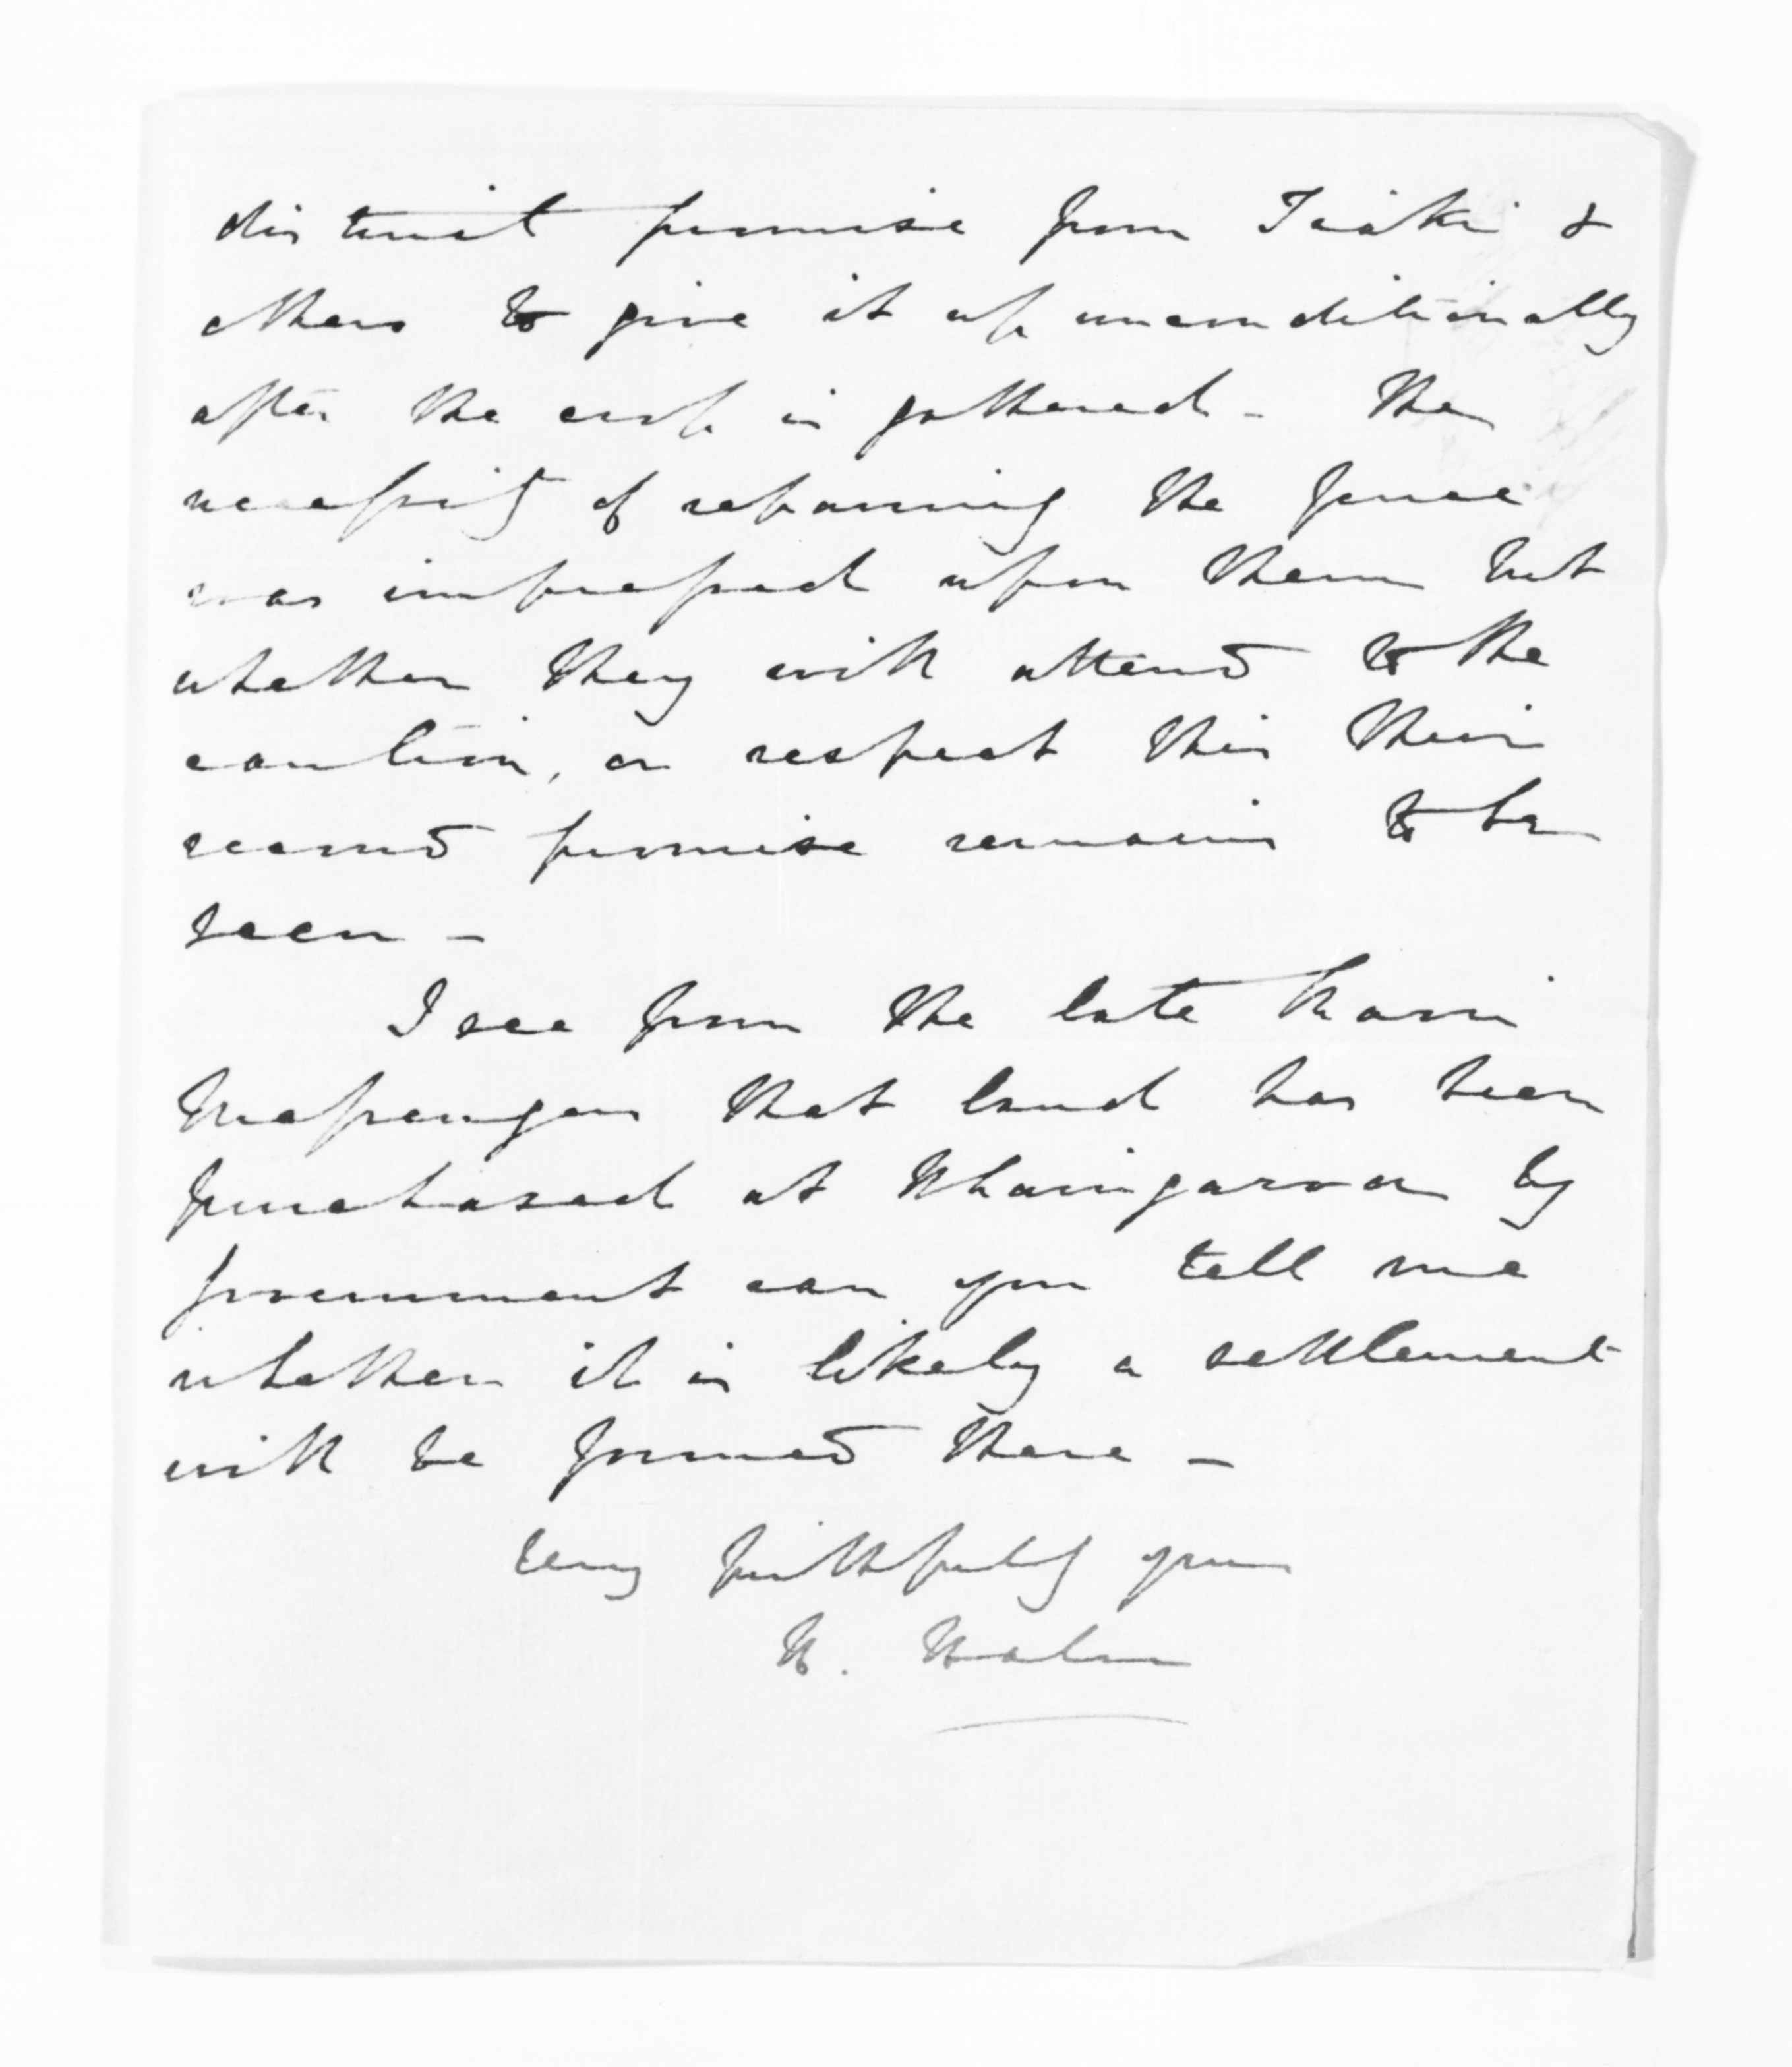 distinct promise from Tiaki &
others to give it up unconditionally
after the crop is gathered - The
necessity of repairing the fence
was impressed upon them but
whether they will attend to the
caution, or respect this their
second promise remains to be
seen -
I see from the late Maori
Messenger that land has been
purchased at Whaingaroa by
government can you tell me
whether it is likely a settlement
will be formed there -
Very faithfully yours
N.